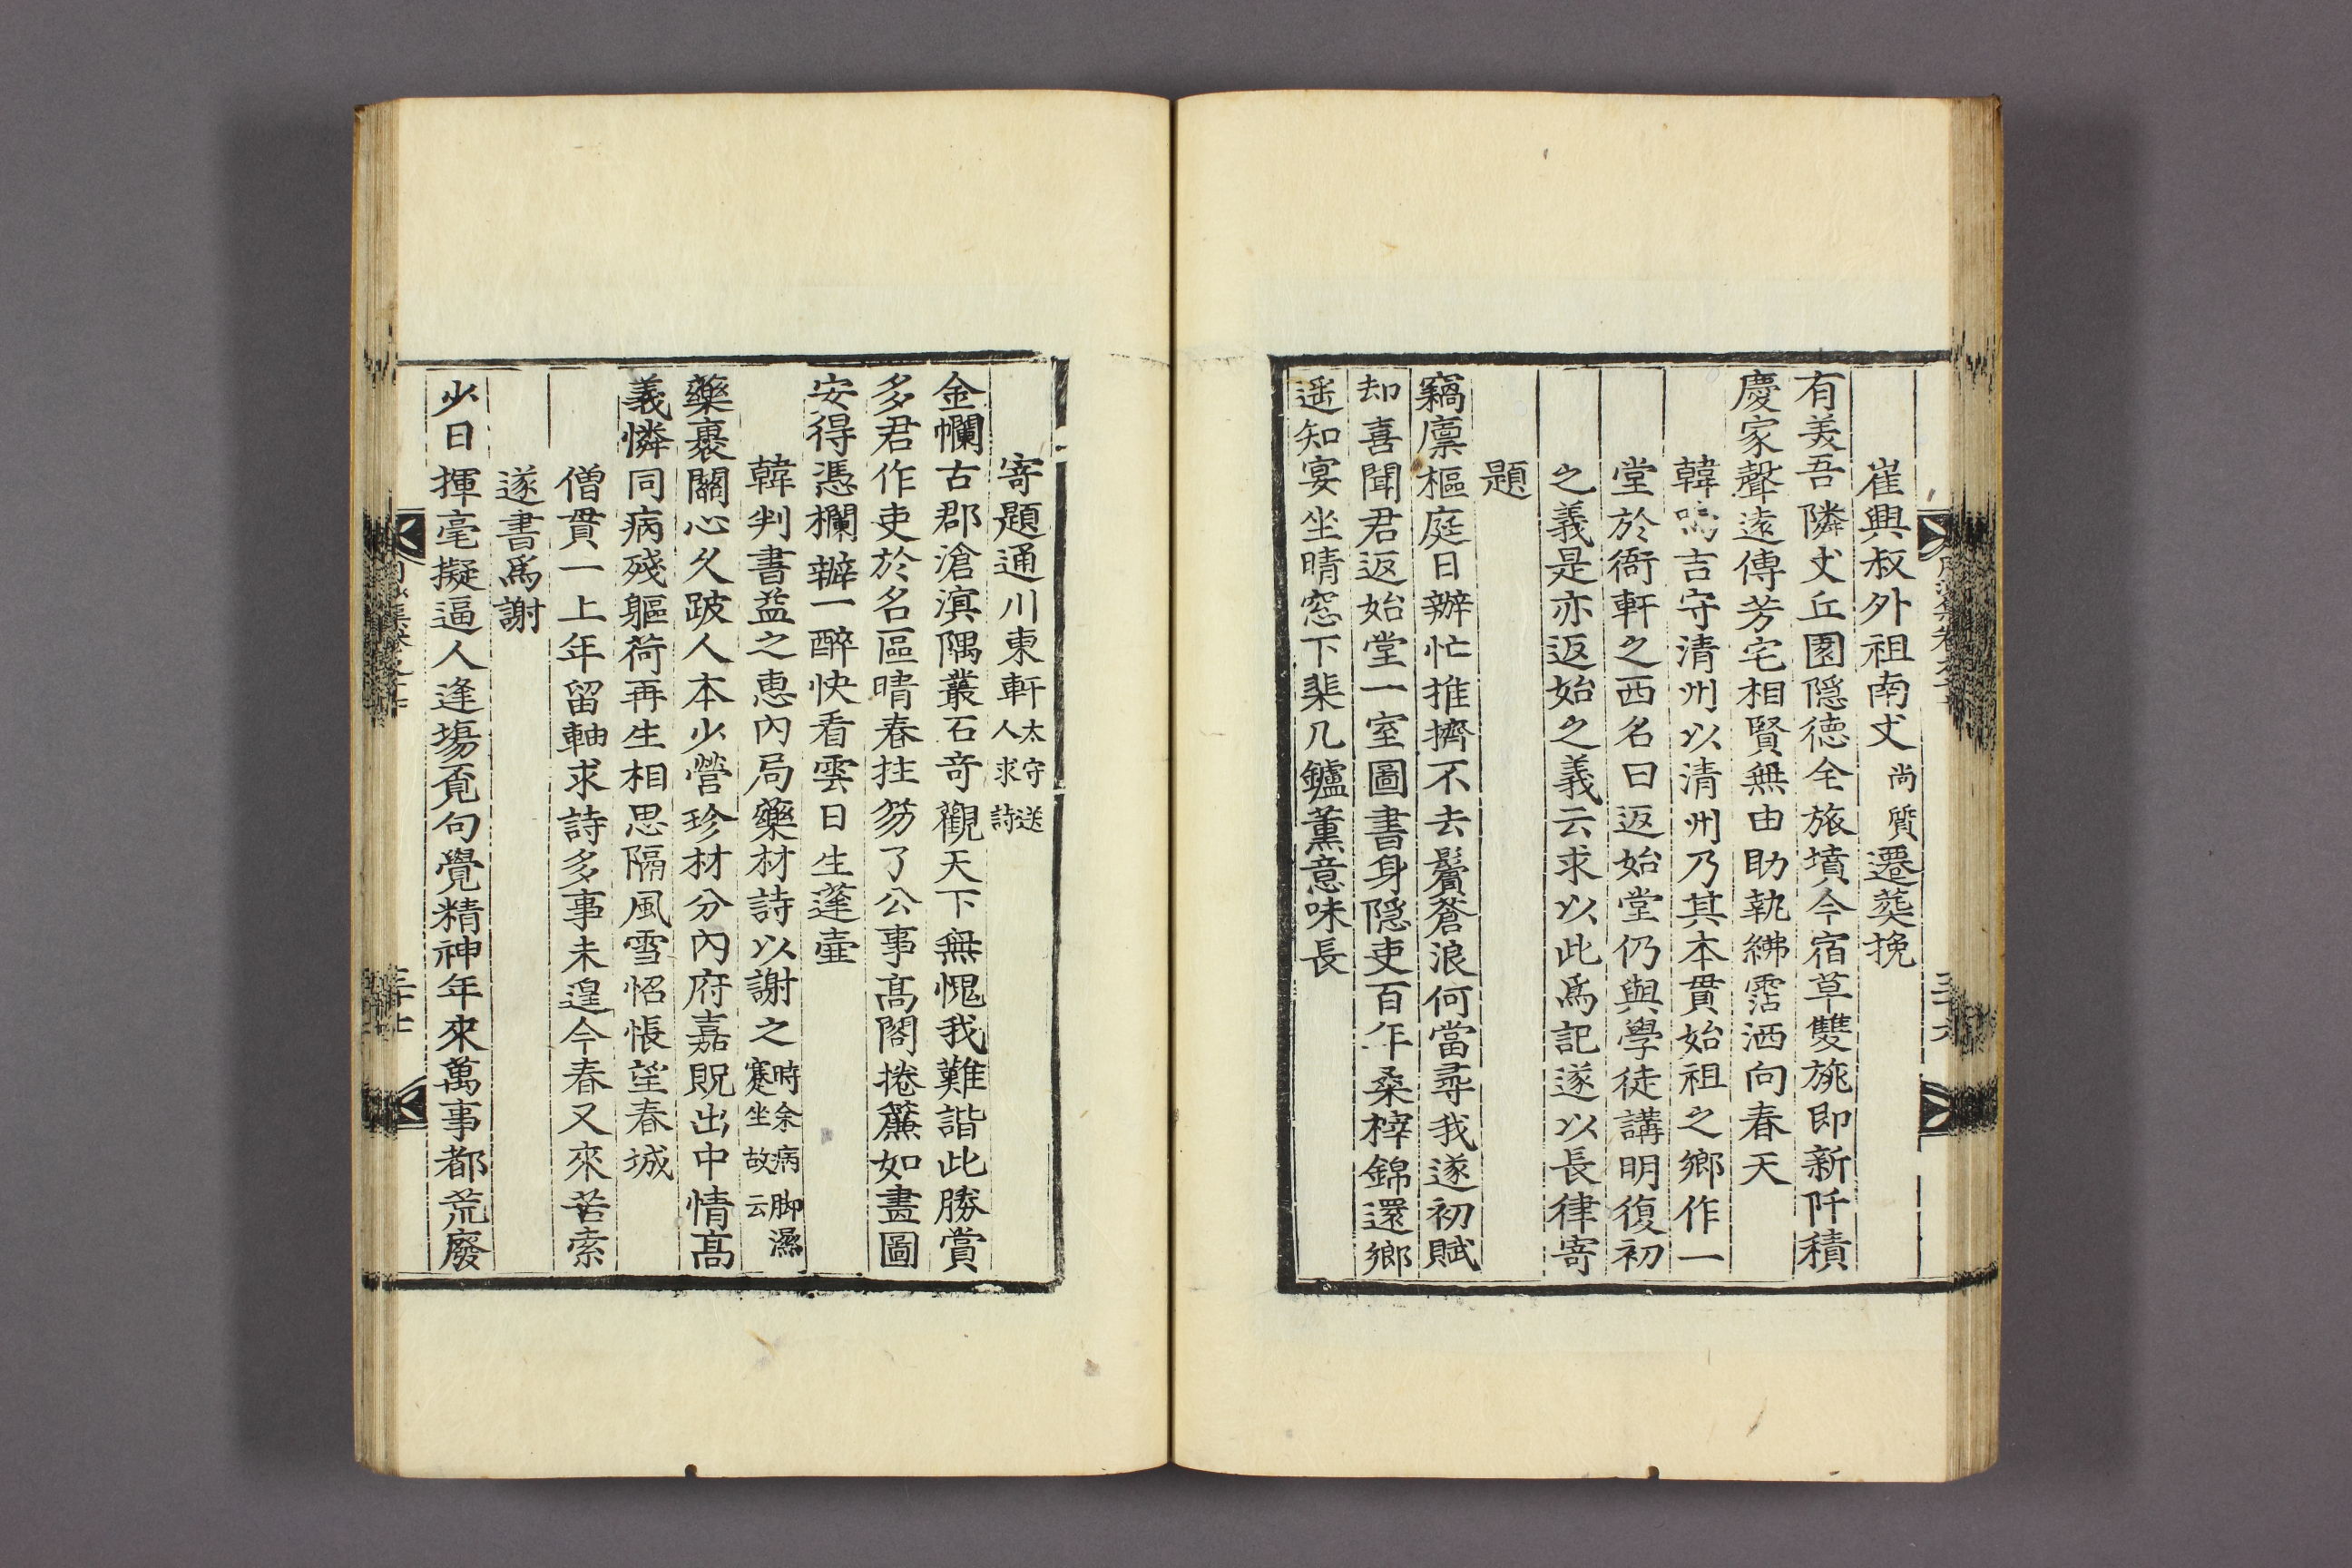 崔興叔外祖南丈尚質遷葬挽
有美吾隣丈丘園隠徳全旅墳今宿草雙旐即新阡積
慶家聲逺傳芳宅相賢無由助執紼霑洒向春天
韓鳴吉守清州以清州乃其本貫始祖之鄉作一
堂於衙軒之西名曰返始堂仍與學徒講明復初
之義是亦返始之義云求以此爲記遂以長律寄
題
竊廪樞庭日辦忙推擠不去鬢蒼浪何當尋我遂初賦
却喜聞君返始堂一室圖書身隠吏百年桑梓錦還鄉
遥知宴坐晴窓下棐几鑪薰意味長
寄題通川東軒太守送人求詩
金幱古郡滄溟隅叢石竒觀天下無愧我難諧此勝賞
多君作吏於名區晴春拄笏了公事髙閣捲簾如畫圖
安得憑欄辦一醉快看雲日生蓬壷
韓判書益之惠內局藥材詩以謝之時余病脚濕蹇坐故云
藥裹關心久跛人本少營珍材分內府嘉貺出中情髙
義憐同病殘軀荷再生相思隔風雪怊悵望春城
僧貫一上年留軸求詩多事未遑今春又來苦索
遂書爲謝
少日揮毫擬逼人逢塲覓句覺精神年來萬事都荒廢